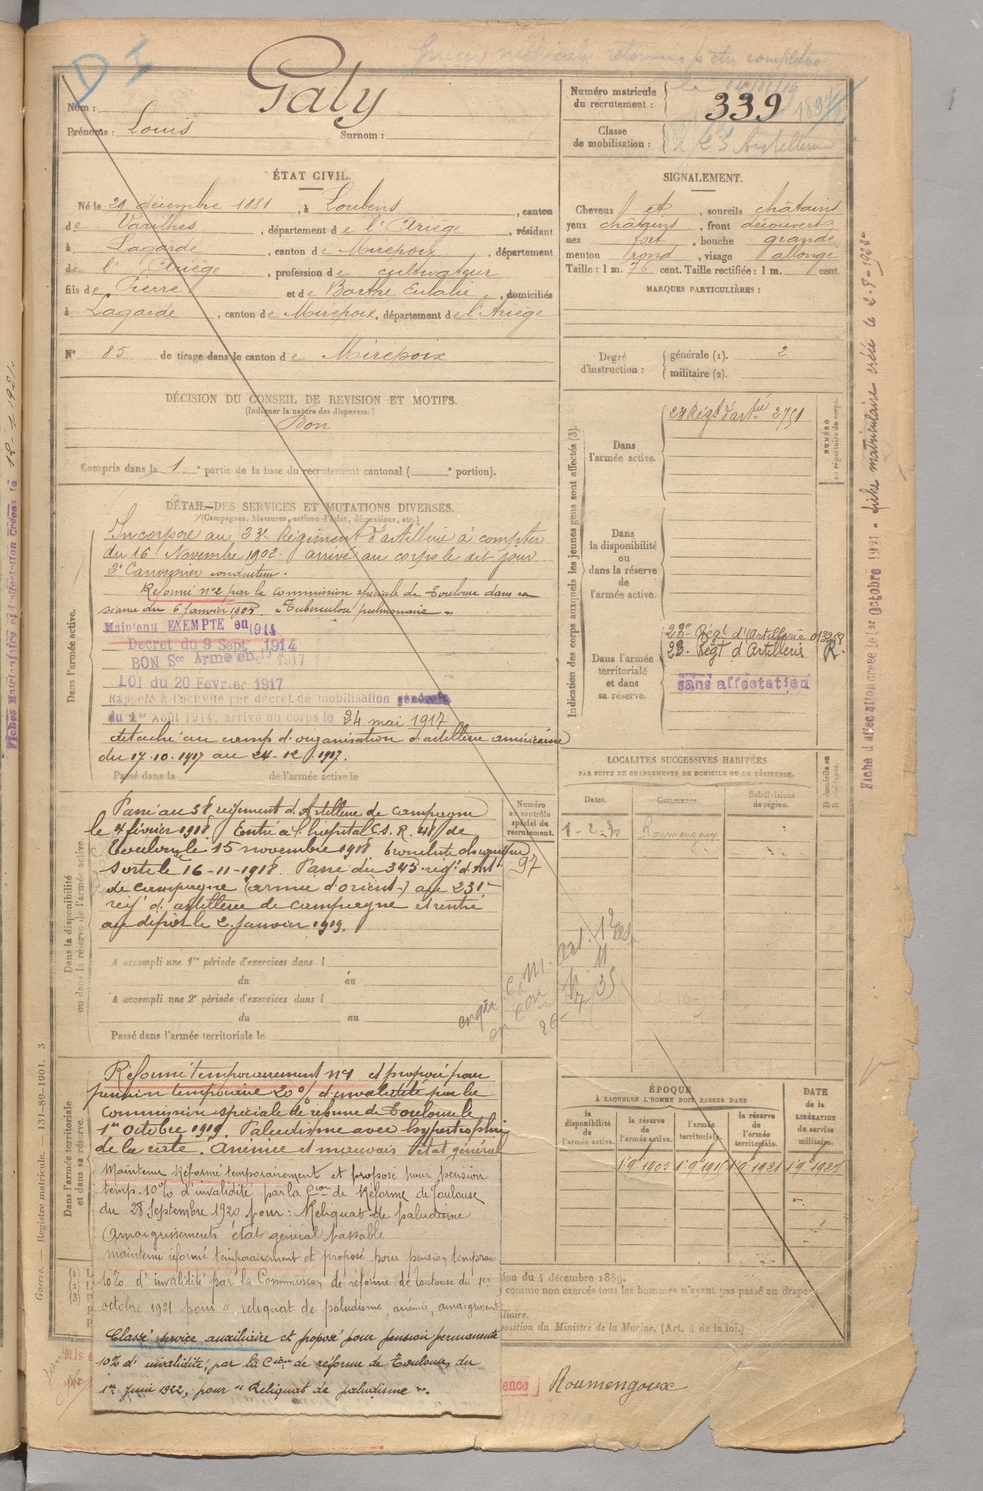 D I
le 14/11/19
Nom : Galy
Prénoms : Louis Surnom :
Numéro matricule
du recrutement : 339
Classe
de mobilisation :
ÉTAT CIVIL.
Né le 29 décembre 1881, à Loubens, canton
de Varilhes, département de l'Ariège, résidant
à Lagarde, canton de Mirepoix, département
de l'Ariège, profession de cultivateur
fils de Pierre et de Barthe Eulalie, domiciliés
à Lagarde, canton de Mirepoix, département de l'Ariège
N° 85 de tirage dans le canton de Mirepoix
SIGNALEMENT.
Cheveux et, sourcils châtains
yeux châtains, front découvert
nez fort, bouche grande
menton rond, visage allongé
Taille : 1 m. 76 cent. Taille rectifiée : 1 m. cent.
MARQUES PARTICULIÈRES :
Degré
d'instruction :
générale (1). 2
militaire (2).
DÉCISION DU CONSEIL DE REVISION ET MOTIFS.
(Indiquer la nature des dispenses.)
Bon
Compris dans la 1e partie de la liste du recrutement cantonal ( e portion).
DÉTAIL DES SERVICES ET MUTATIONS DIVERSES.
(Campagnes, blessures, actions d'éclat, décorations, etc.)
Dans l'armée active.
Incorporé au 23e Régiment d'artillerie à compter
du 16 Novembre 1902 arrivé au corps le dit jour
2e Canonnier conducteur.
Réformé n°2 par la commission spéciale de Toulouse dans sa
séance du 6 Janvier 1903 "Tuberculose pulmonaire"
Maintenu EXEMPTE en 1914
Décret du 9 Sept 1914
BON Sce Armé en 1917
LOI du 20 Février 1917
Rappelé à l'activité par décret de mobilisation générale
du 1er Août 1914, arrivé au corps le 24 mai 1917
détaché au camp d'organisation d'artillerie américaine
du 17.10.1917 au 24-12-1917.
Passé dans la de l'armée active le
Dans la disponibilité
ou dans la réserve de l'armée active.
Passé au 58 régiment d'Artillerie de campagne
le 4 février 1918 Entré à l'hôpital
Toulon le 15 novembre 1918 bronchite chronique
Sorti le 16-11-1918. Passé du 343 régt d'Art
de campagne (armée d'orient) au 231e
régt d'artillerie de campagne et rentré
au dépôt le 2 janvier 1919.
A accompli une 1re période d'exercices dans l
du au
A accompli une 2e période d'exercices dans l
du au
Passé dans l'armée territoriale le
Numéro
au contrôle
spécial du
recrutement.
97
Dans l'armée territoriale
et dans sa réserve.
Réformé temporairement n°1 et proposé pour
pension temporaire 20% d'invalidité par la
commission spéciale de réforme de Toulouse le
1er Octobre 1919. Paludisme avec hypertrophie
de la rate. Anémie et mauvais état général
Maintenu Réformé temporairement et proposé pour pension
temp. 10% d'invalidité par la Cion de Réforme de Toulouse
du 28 Septembre 1920 pour : Reliquat de paludisme
Amaigrissement état général passable
maintenu réformé temporairement et proposé pour pension temporaire
10% d'invalidité par la Commission de réforme de Toulouse du 1er
octobre 1921 pour "reliquat de paludisme, anémie, amaigrissement
Classé service auxiliaire et proposé pour pension permanente
10% d'invalidité, par la Cion de réforme de Toulouse du
1er juin 1922, pour "Reliquat de paludisme".
Indication des corps auxquels les jeunes gens sont affectés (3).
NUMÉRO
au répertoire du corps.
Dans
l'armée active.
23 Régt d'artrie 2751
Dans
la disponibilité
ou
dans la réserve
de
l'armée active.
Dans l'armée
territoriale
et dans
sa réserve.
23e Régt d'Artillerie
23. Régt d'Artillerie R.
sans affectation
LOCALITÉS SUCCESSIVES HABITÉES
PAR SUITE DE CHANGEMENTS DE DOMICILE OU DE RÉSIDENCE.
Dates. Communes. Subdivisions
de région. D domicile ou
R résidence.
1-2-30 Roumengoux
26-7-35
ÉPOQUE
À LAQUELLE L'HOMME DOIT PASSER DANS
la
disponibilité
de
l'armée active.
la réserve
de
l'armée active.
l'armée
territoriale.
la réserve
de
l'armée
territoriale.
DATE
de la
LIBÉRATION
du service
militaire.
1.9.1905 1.9.1915 1.9.1921 1.9.1927
sion du 4 décembre 1889.
comme non exercés tous les hommes n'ayant pas passé au drapeau
iliaire.
position du Ministre de la Marine. (Art. 4 de la loi.)
ence Roumengoux
Guerre. — Registre matricule. 131-89-1901. 3
Fiche d'affectation créée le 1er Octobre 1921. fiche matriculaire créée le